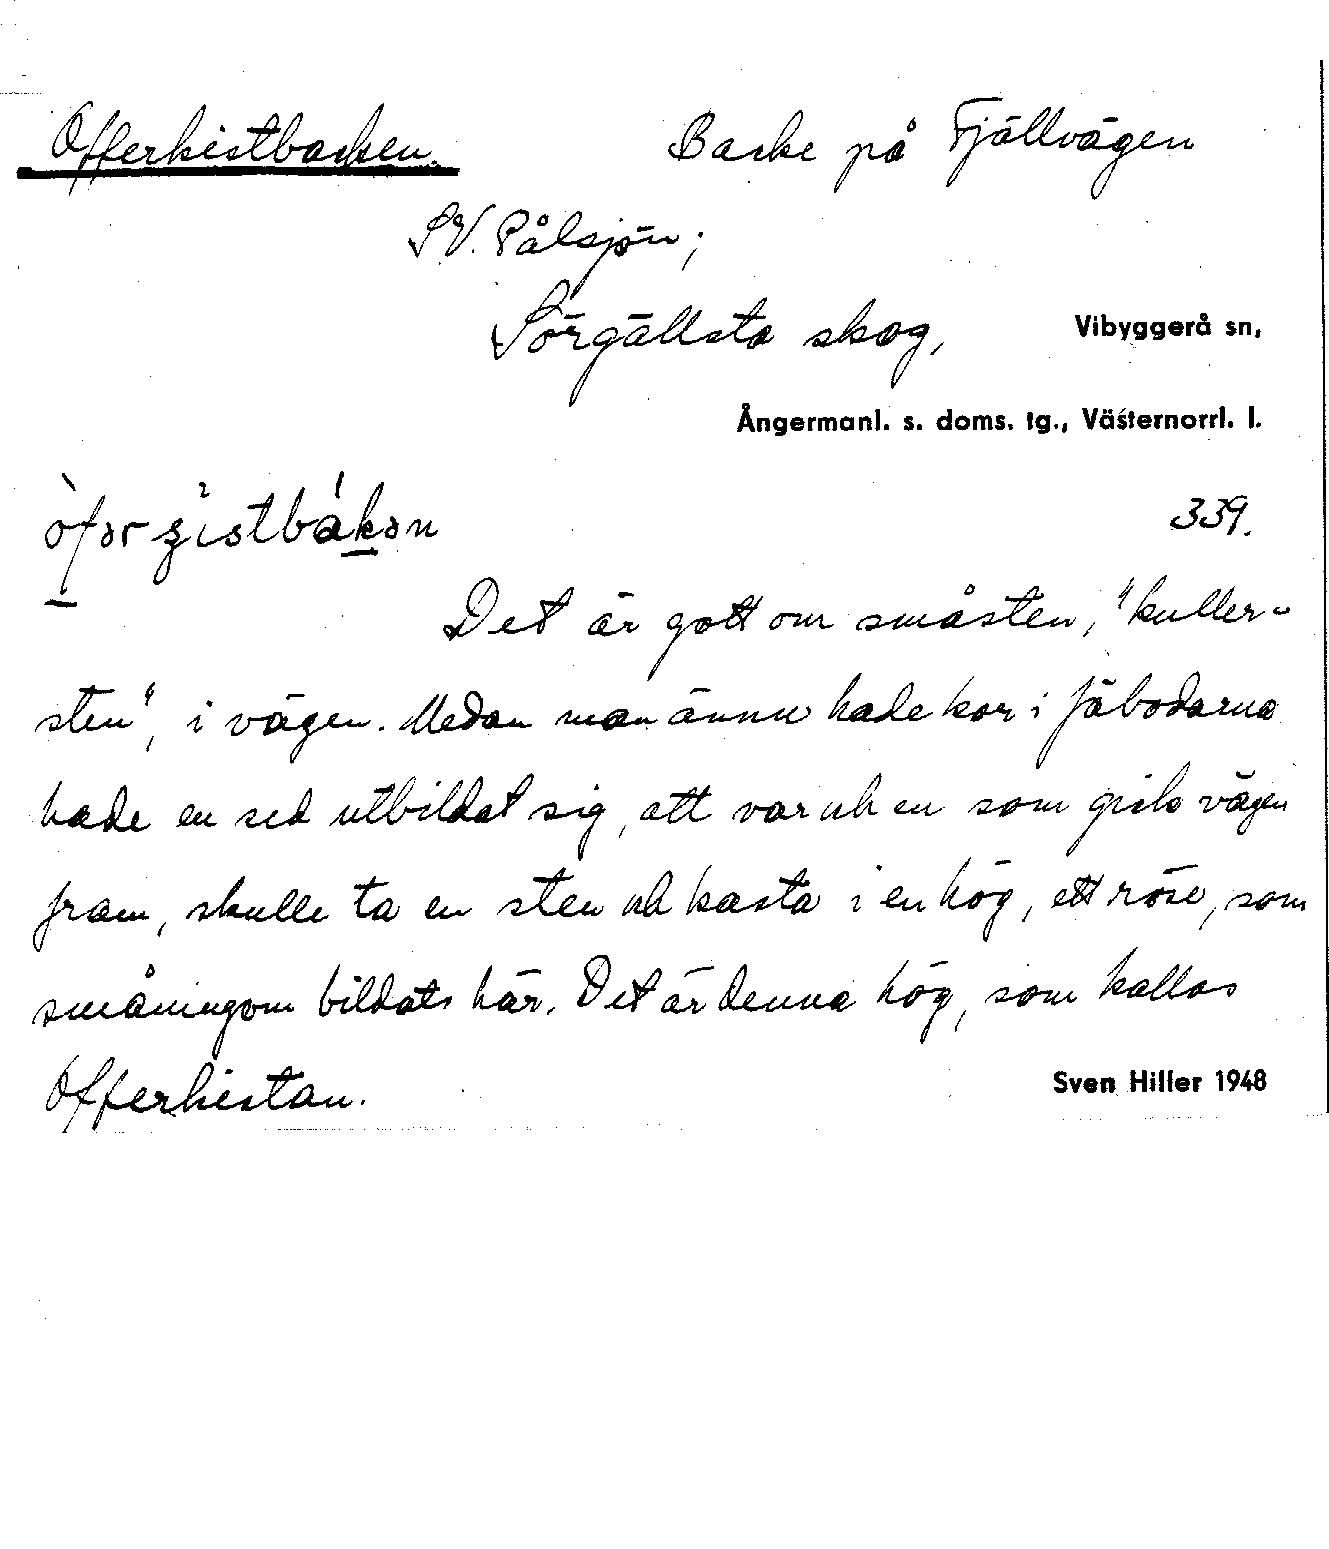 Offerkistbacken. Backe på Fjällvägen
SV. Pålsjön;
Sörgällsta skog, Vibyggerå sn,
Ångermanl. s. doms. tg., Västernorrl. l.
339.
Det är gott om småsten, "kuller-
sten", i vägen. Medan man ännu hade kor i fäbodarna
hade en sed utbildat sig, att var och en som gick vägen
fram, skulle ta en sten och kasta i en hög, ett röse, som
småningom bildats här. Det är denna hög, som kallas
Offerkistan. Sven Hiller 1948